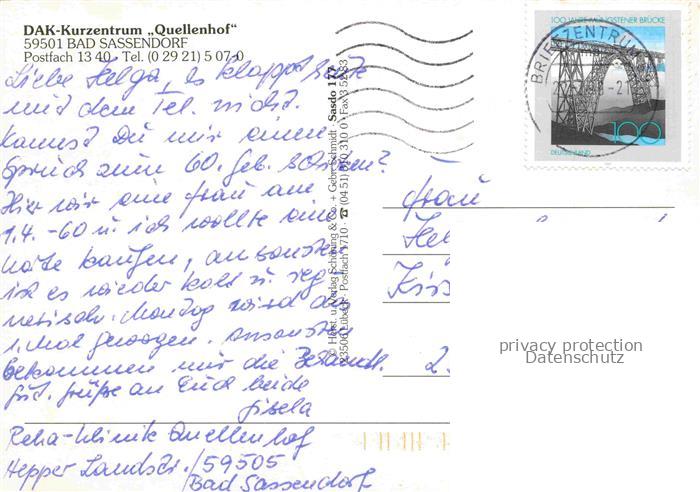 DAK-Kurzentrum „Quellenhof“
59501 BAD SASSENDORF
Postfach 13 40 · Tel. (0 29 21) 5 07-0
Liebe Helga, es klappt heute
mit dem Tel. nicht.
Kannst Du mir einen
Spruch zum 60. Geb. schicken?
Hier wir eine Frau am
1.4. -60 u. ich wollte eine
Karte kaufen, ansonsten
ist es wieder kalt u. reg-
nerisch. Montag wird das
1. Mal gewogen. Ansonsten
bekommen mir die Behandl.
gut. Grüße an Euch beide
Gisela
Reha-Klinik Quellenhof
Hepper Landstr. / 59505
Bad Sassendorf
Schöning & Co. + Gebr. Schmidt · Sasdo 177
Lübeck · Postfach 1710
100 JAHRE MÜNGSTENER BRÜCKE
BRIEFZENTRUM
100
DEUTSCHLAND
Frau
Hel
privacy protection
Datenschutz